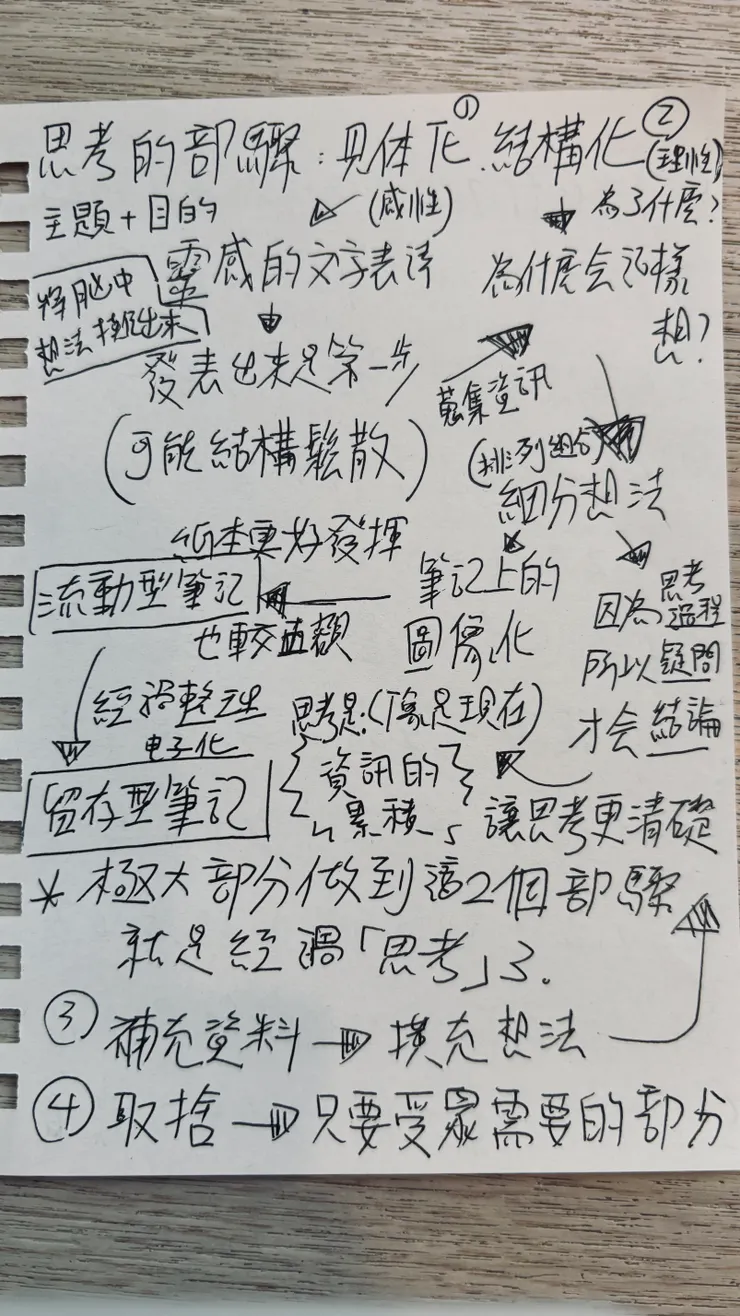 思考的部驟:具体化①、結構化②
(理性)
主題+目的
(感性)
為了什麼?
靈感的文字表達
為什麼会這樣
想?
將脑中
想法挖出來
發表出來是第一步
蒐集資訊
(可能結構鬆散)
(排列組合)
細分想法
紙本更好發揮
流動型筆記
筆記上的
圖像化
也較直観
因為思考過程
所以疑問
才会結論
經過整理
电子化
思考是:(像是現在)
資訊的
累積
留存型筆記
讓思考更清礎
*極大部分做到這2個部驟
就是經過「思考」了.
③補充資料→擴充想法
④取捨→只要受眾需要的部分